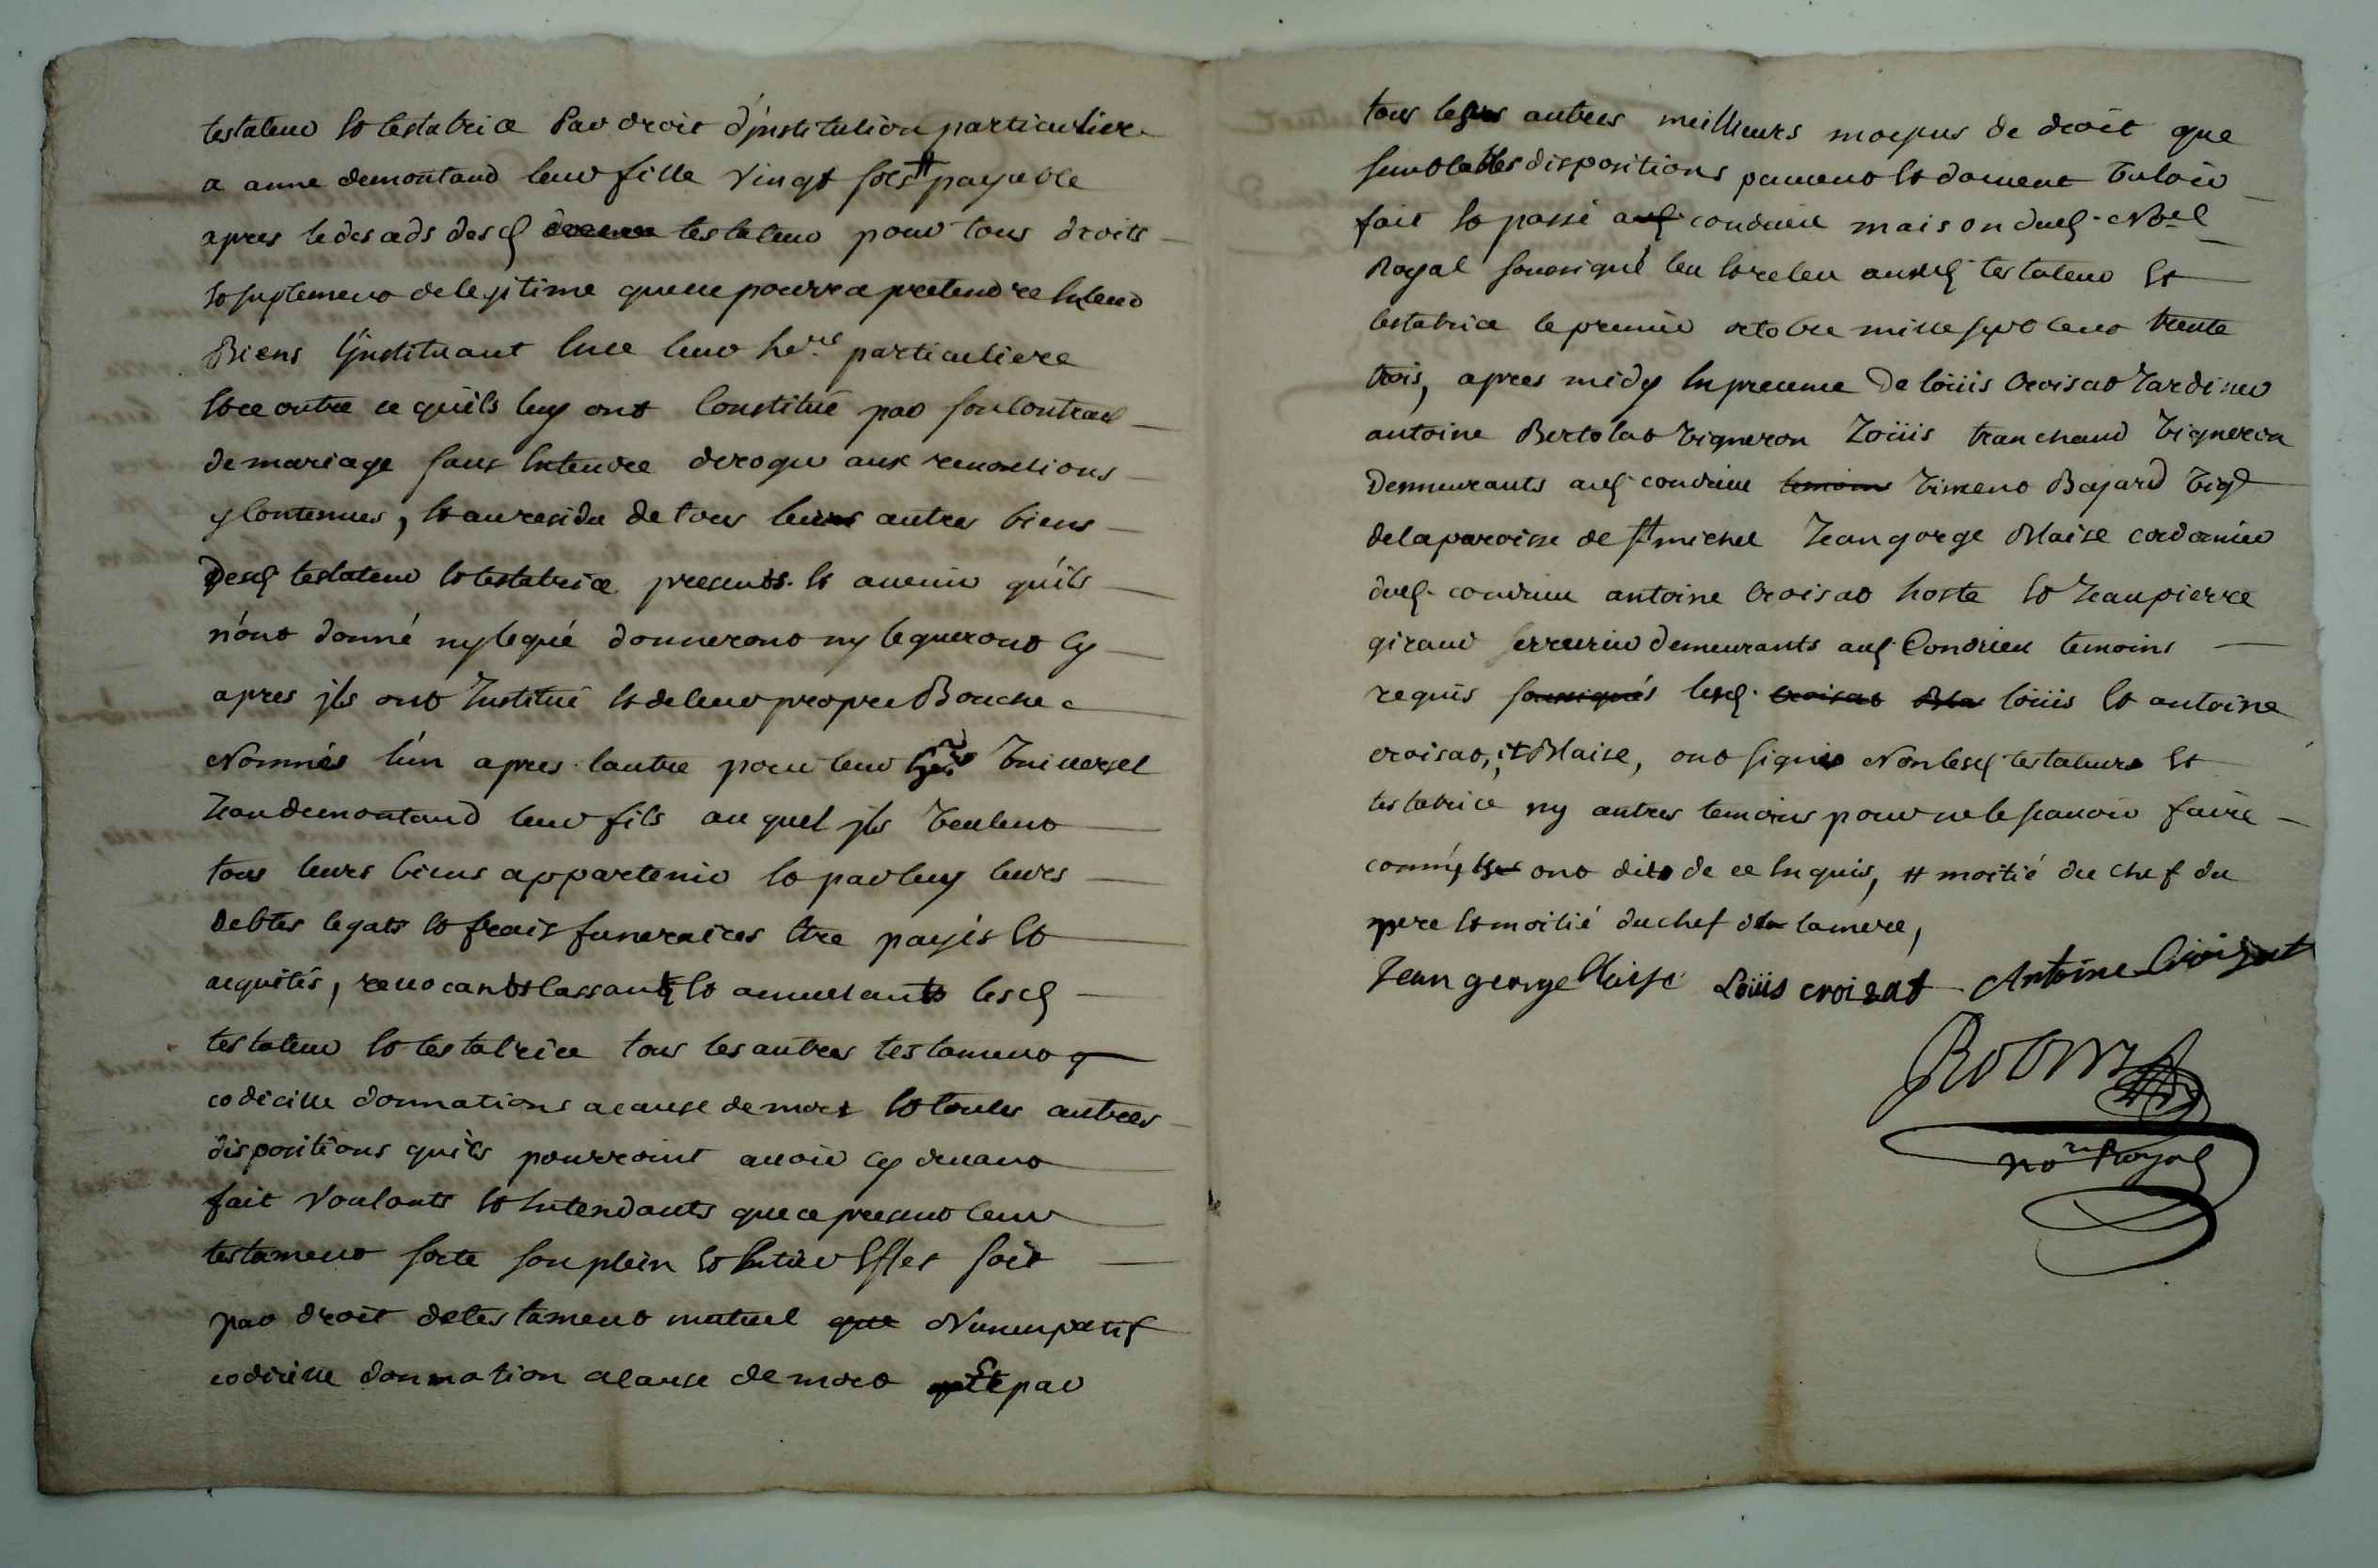 testateur et testatrice Par droit d'jnstitution particuliere
a anne demontaud leur fille vingt sols # payable
apres le desceds desd testateur pour tous droits
et suplement de legitime quelle pourra pretendre en leur
Biens L'jnstituant en ce leur here particuliere
et ce outre ce qu'ils luy ont Constitué par son Contract
de mariage sans Entendre deroger aux renontions
y Contenues, et au residu de tous leurs autres biens
Desd testateur et testatrice presents et avenir qu'ils
n'ont donné ny legué donneront ny legueront cy
apres jls ont Institué et de leur propre Bouche
Nommés l'un apres lautre pour leur her Universel
Jean demontaud leur fils au quel jls Veulent
tous leurs biens appartenir et par luy leurs
debtes legats et frais funeraires Etre payés et
acquités, revocants Cassants et annullants lesd
testateur et testatrice tous les autres testament
codicille donnations a cause de mort et toutes autres
dispositions qu'ils pourroint avoir cy devant
fait voulants et Entendants que ce present leur
testament sorte son plein et Entier Effet soit
par droit de testament mutuel que Nuncupatif
codicille donnation a Cause de mort Et par
tous les autres meilleurs moyens de droit que
semblables dispositions peuvent et doivent Valoir
fait et passé aud condrieu maison dud Nore
Royal soussigné leu et releu auxd testateur et
testatrice le premier octobre mille sept cent trente
trois, apres midy En presence De loüis Croisat Jardinier
antoine Bertolat Vigneron Loüis tranchand Vigneron
Demeurants aud condrieu temoins Vincent Bajard Vign
de la paroisse de st michel Jean gorge Blaise cordonnier
dud condrieu antoine Croisat hoste et Jean pierre
giraud serrurier demeurants aud Condrieu temoins
requis soussignés lesd croisat Bla loüis et antoine
croisat, et Blaise, ont signé Non lesd testateur et
testatrice ny autres temoins pour ne le scavoir faire
comme ont dit de ce Enquis, # moitié du chef du
pere et moitié du chef de la mere,
Jean george Blaise Loüis croizat Antoine Croizat
nore Royal